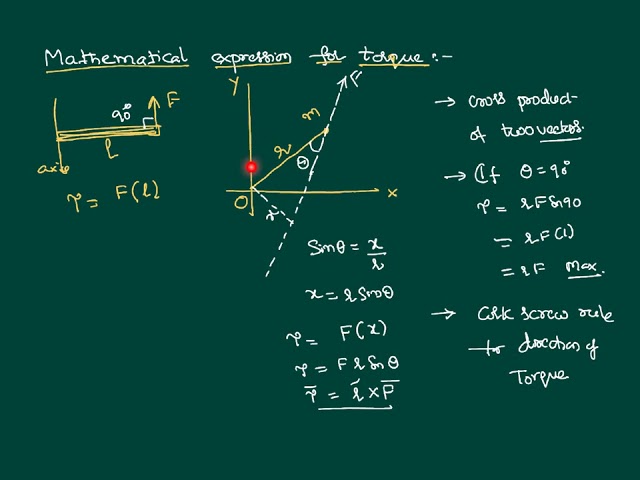 Mathematical expression for torque :-
F
90°
l
axis
τ = F(l)
y
m
F
r
θ
O
x
x
Sinθ = x/r
x = r Sinθ
τ = F(x)
τ = F r Sin θ
τ̅ = r̅ × F̅
→ cross product
of two vectors.
→ If θ = 90°
τ = r F Sin 90
= r F (1)
= r F Max.
→ Cork screw rule
for direction of
Torque